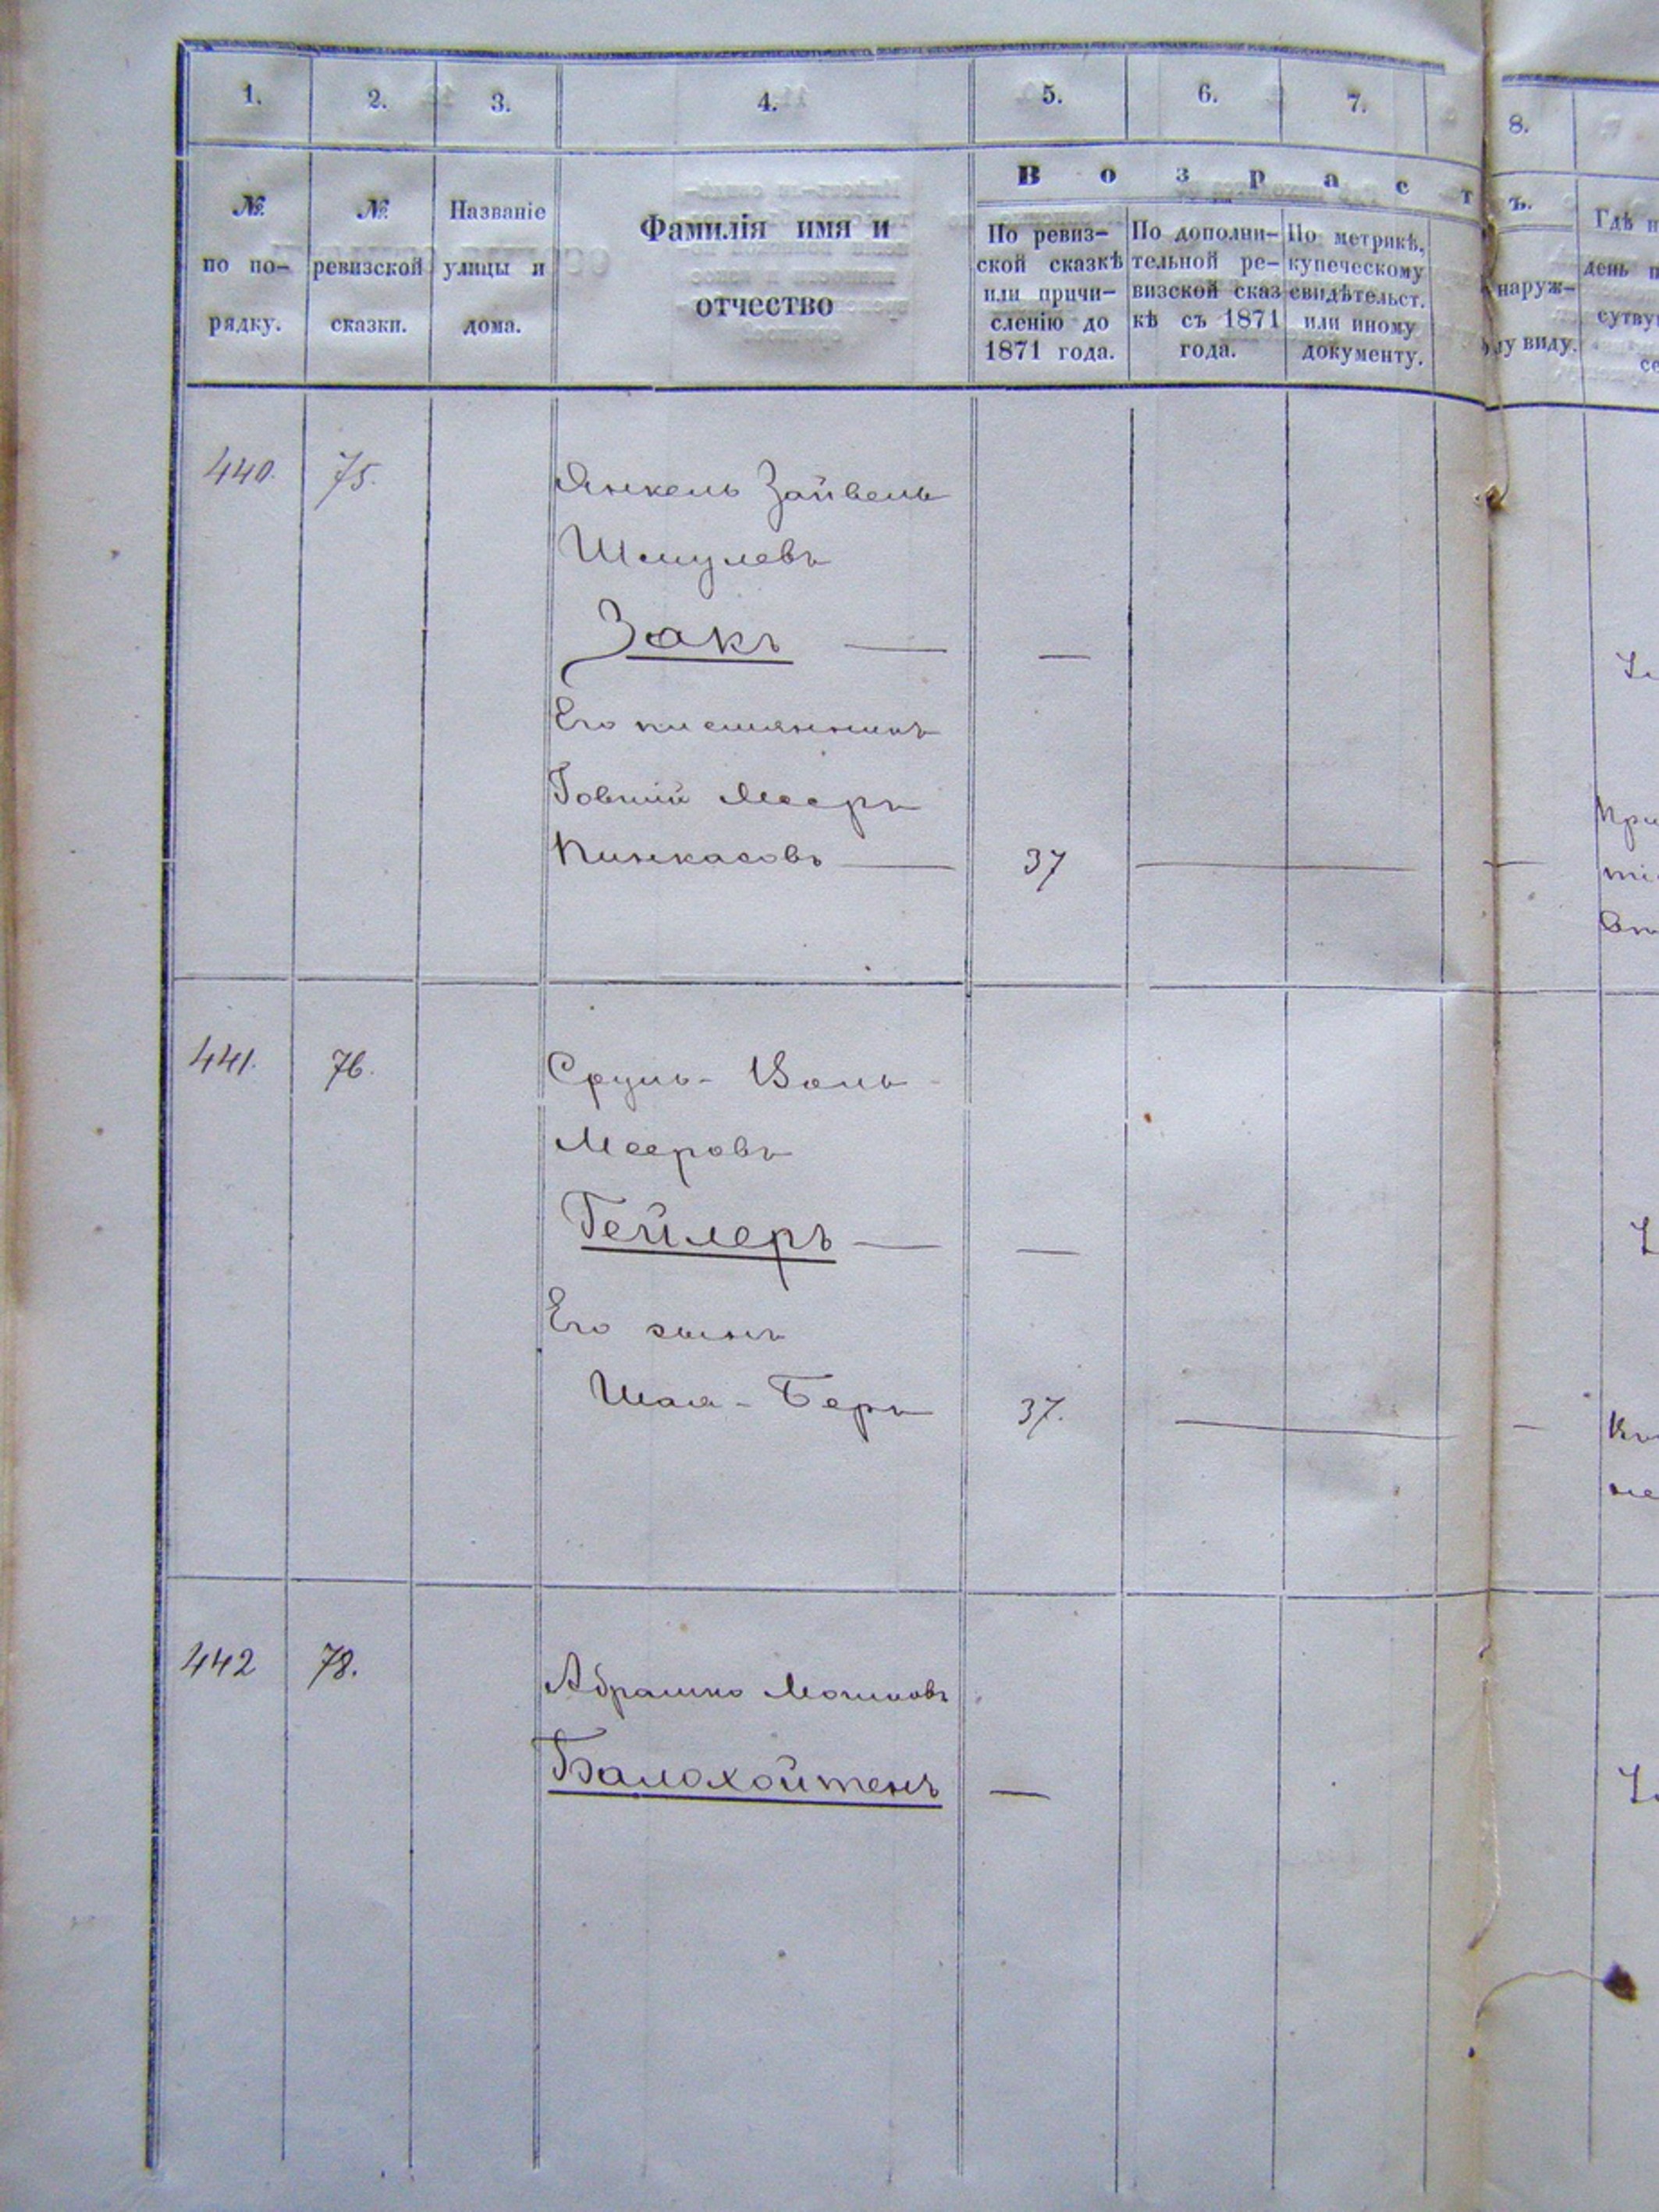 1. 2. 3. 4. 5. 6. 7. 8.
В о з р а с т ъ.
№ по по-рядку.
№ ревизской сказки.
Названіе улицы и дома.
Фамилія имя и
отчество
По ревиз-
ской сказкѣ
или причи-
сленію до
1871 года.
По дополни-
тельной ре-
визской сказ
кѣ съ 1871
года.
По метрикѣ,
купеческому
свидѣтельст.
или иному
документу.
наруж-
му виду.
Гдѣ н
день п
сутву
440. 75. Янкель Зайвель
Шмулевъ
Закъ — —
Его племянникъ
Говшій Мееръ
Пинкасовъ — 37 — —
441. 76. Сруль - Вольь
Мееровъ
Гейлеръ — —
Его сынъ
Шая - Беръ 37. — —
442 78. Абрашко Мошковъ
Балахойтенъ —